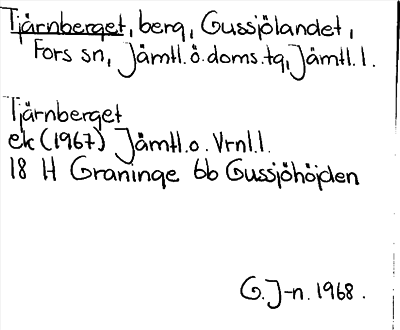 Tjärnberget, berg, Gussjölandet,
Fors sn, Jämtl. ö. doms. tg, Jämtl. l.
Tjärnberget
ek (1967) Jämtl. o. Vrnl. l.
18 H Graninge 6b Gussjöhöjden
G. J-n. 1968.